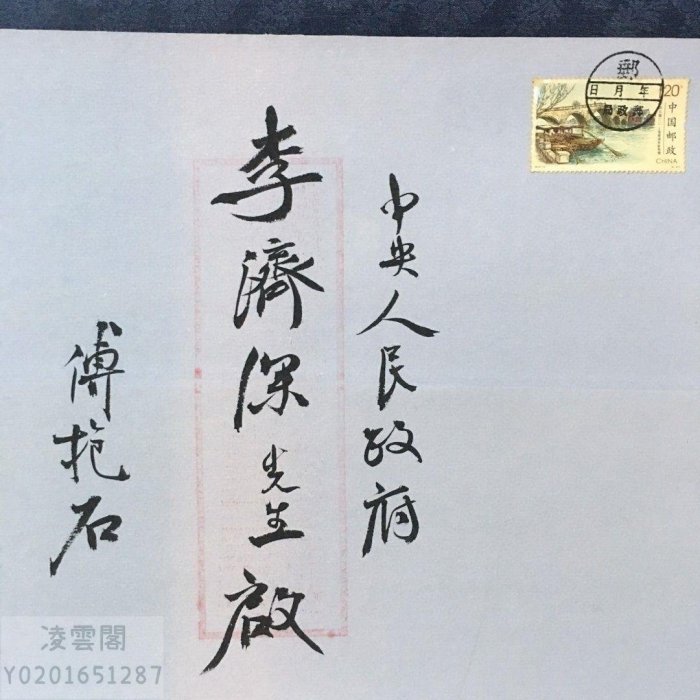 中央人民政府
李濟深先生啟
傅抱石
郵
年月日
郵政局
20
中国邮政
CHINA
凌雲閣
Y0201651287